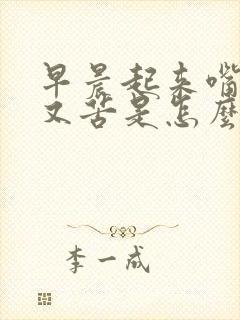 早晨起来嘴
又苦是怎麼
李一成